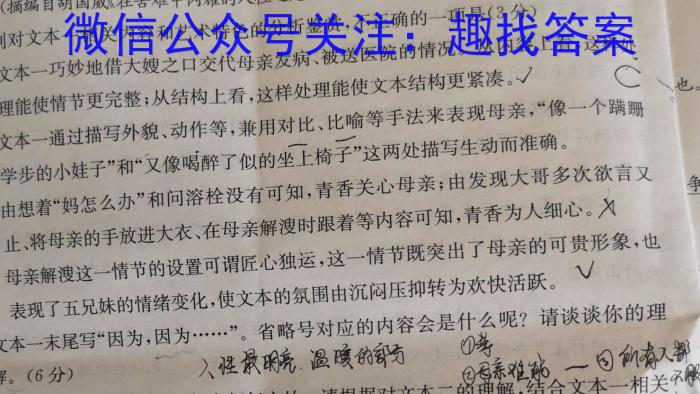 (摘编自胡国威《在苦难中
列对文本一内容和艺术特色的分析鉴赏,不正确的一项是(3分)
微信公众号关注：趣找答案
文本一巧妙地借大嫂之口交代母亲发病、被送医院的情况。从内容上看,这
理能使情节更完整;从结构上看,这样处理能使文本结构更紧凑。
文本一通过描写外貌、动作等,兼用对比、比喻等手法来表现母亲,“像一个蹒跚
学步的小娃子”和“又像喝醉了似的坐上椅子”这两处描写生动而准确。
由想着“妈怎么办”和问溶栓没有可知,青香关心母亲;由发现大哥多次欲言又
止、将母亲的手放进大衣、在母亲解溲时跟着等内容可知,青香为人细心。
母亲解溲这一情节的设置可谓匠心独运,这一情节既突出了母亲的可贵形象,也
表现了五兄妹的情绪变化,使文本的氛围由沉闷压抑转为欢快活跃。
文本一末尾写“因为,因为……”。省略号对应的内容会是什么呢？请谈谈你的理
解。(6分)
请根据对文本二的理解,结合文本一相关
也。